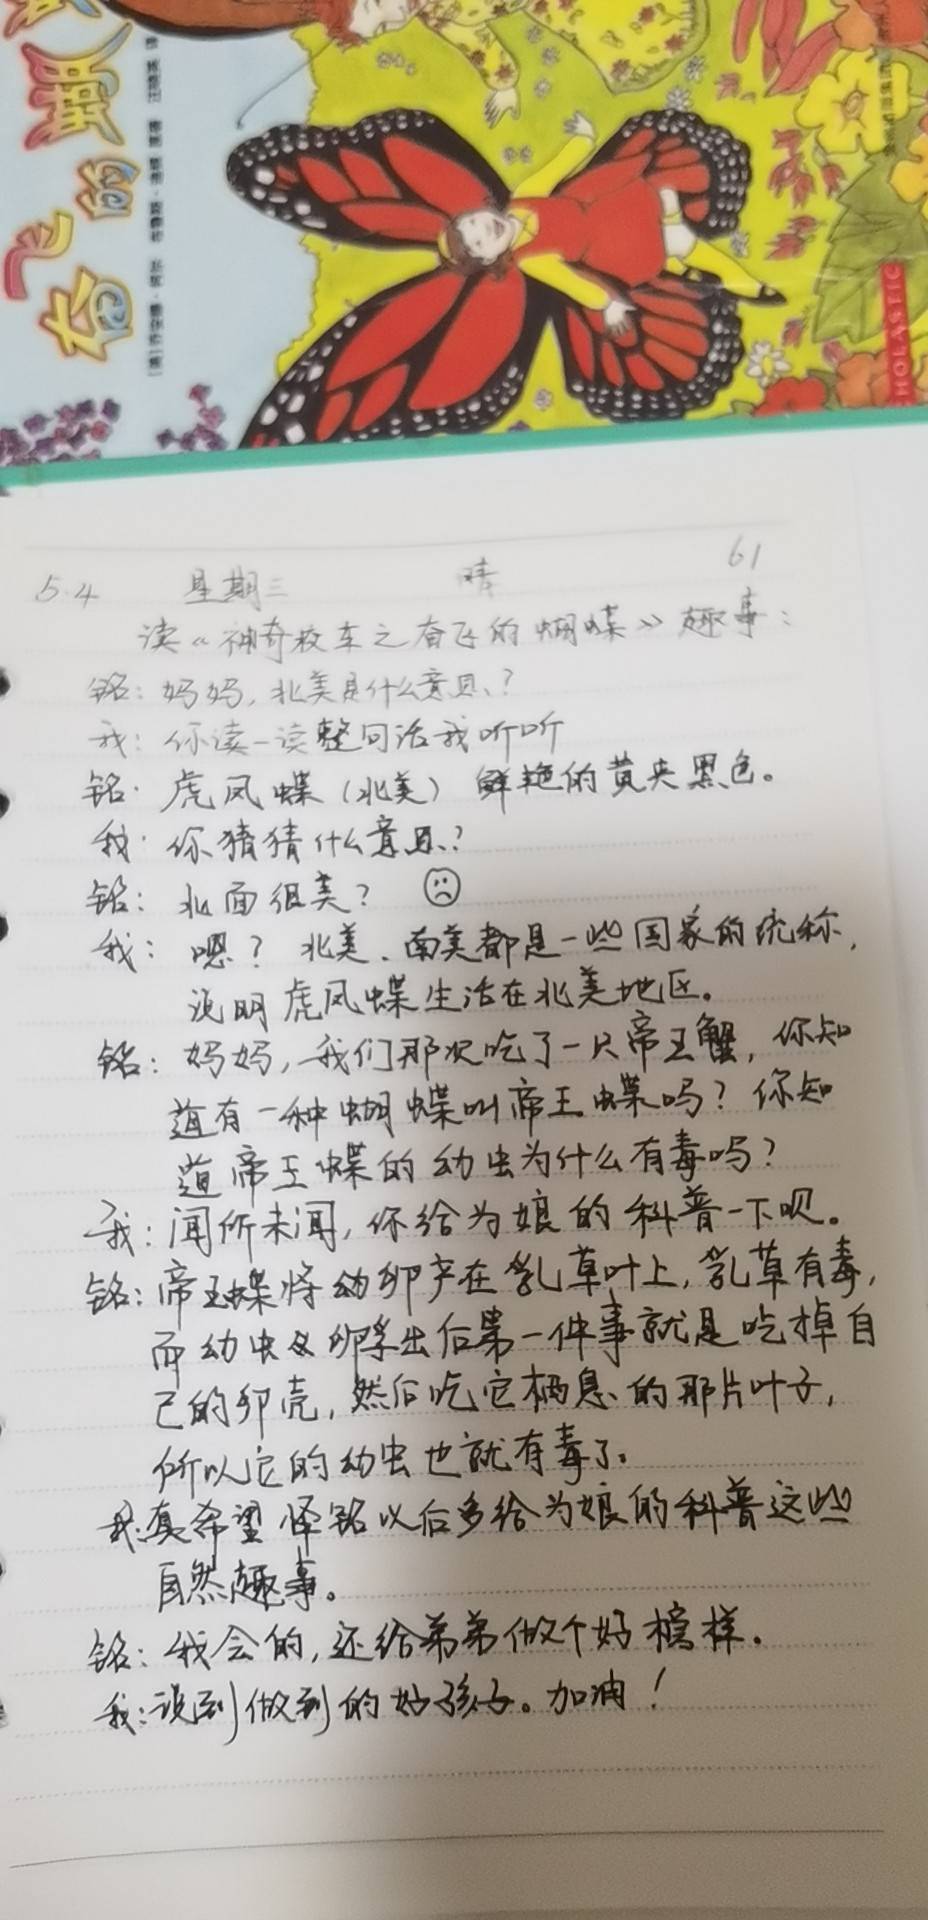 奋飞的
HOLASTIC
5.4 星期三 晴 61
读《神奇校车之奋飞的蝴蝶》趣事:
铭:妈妈,北美是什么意思?
我:你读一读整句话我听听
铭:虎凤蝶(北美)鲜艳的黄夹黑色。
我:你猜猜什么意思?
铭:北面很美?
我:嗯?北美、南美都是一些国家的统称,
说明虎凤蝶生活在北美地区。
铭:妈妈,我们那次吃了一只帝王蟹,你知
道有一种蝴蝶叫帝王蝶吗?你知
道帝王蝶的幼虫为什么有毒吗?
我:闻所未闻,你给为娘的科普一下呗。
铭:帝王蝶将幼卵产在乳草叶上,乳草有毒,
而幼虫孵出后第一件事就是吃掉自
己的卵壳,然后吃它栖息的那片叶子,
所以它的幼虫也就有毒了。
我:真希望怿铭以后多给为娘的科普这些
自然趣事。
铭:我会的,还给弟弟做个好榜样。
我:说到做到的好孩子。加油!